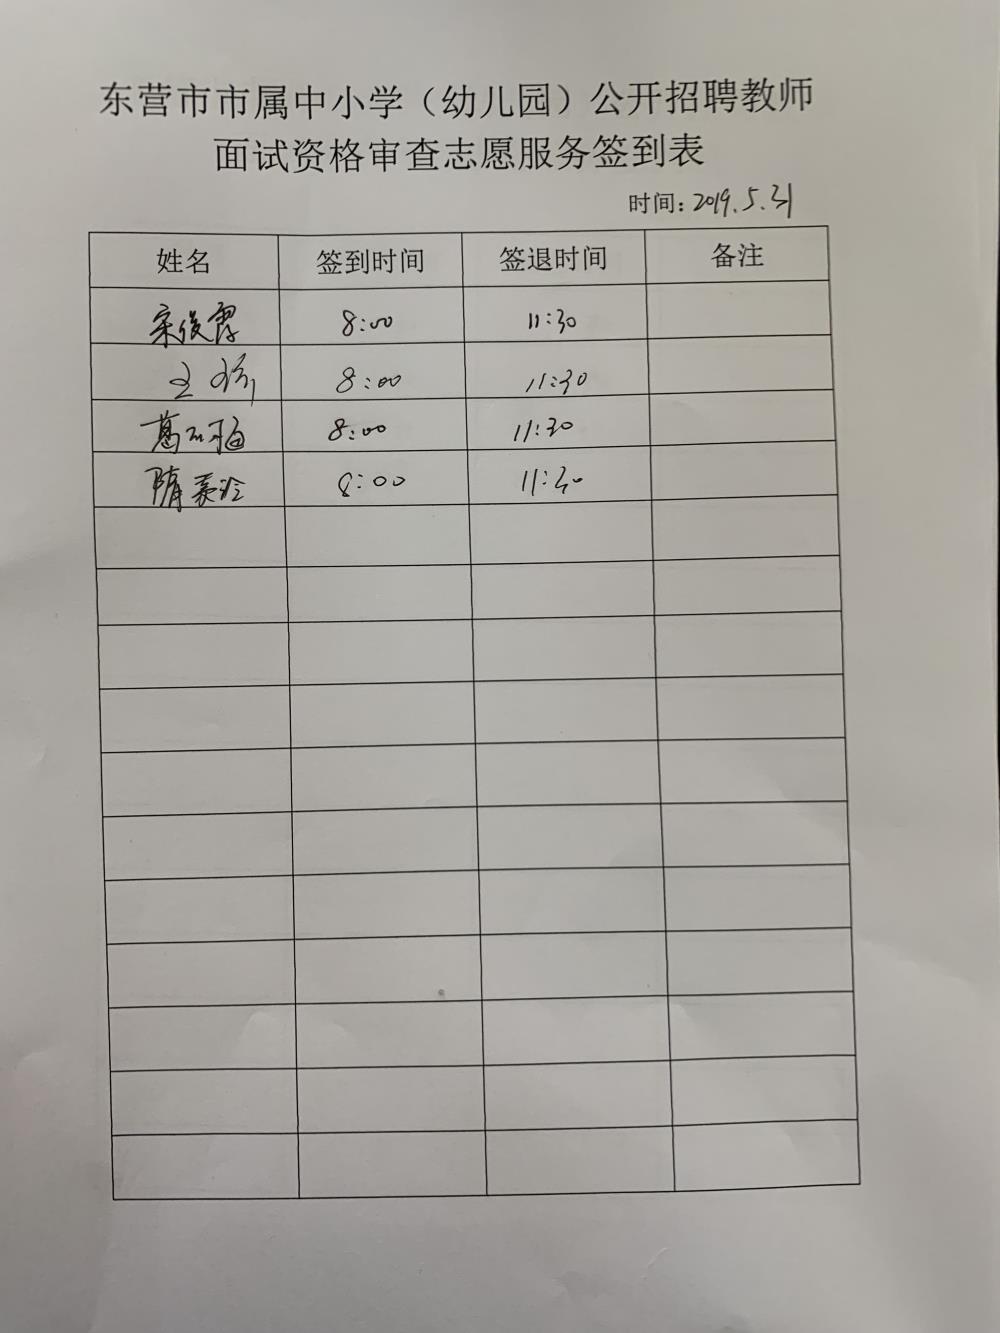 东营市市属中小学（幼儿园）公开招聘教师
面试资格审查志愿服务签到表
时间：2019.5.31
姓名 签到时间 签退时间 备注
宋俊霞 8:00 11:30
王 8:00 11:30
葛 8:00 11:30
隋 8:00 11:30